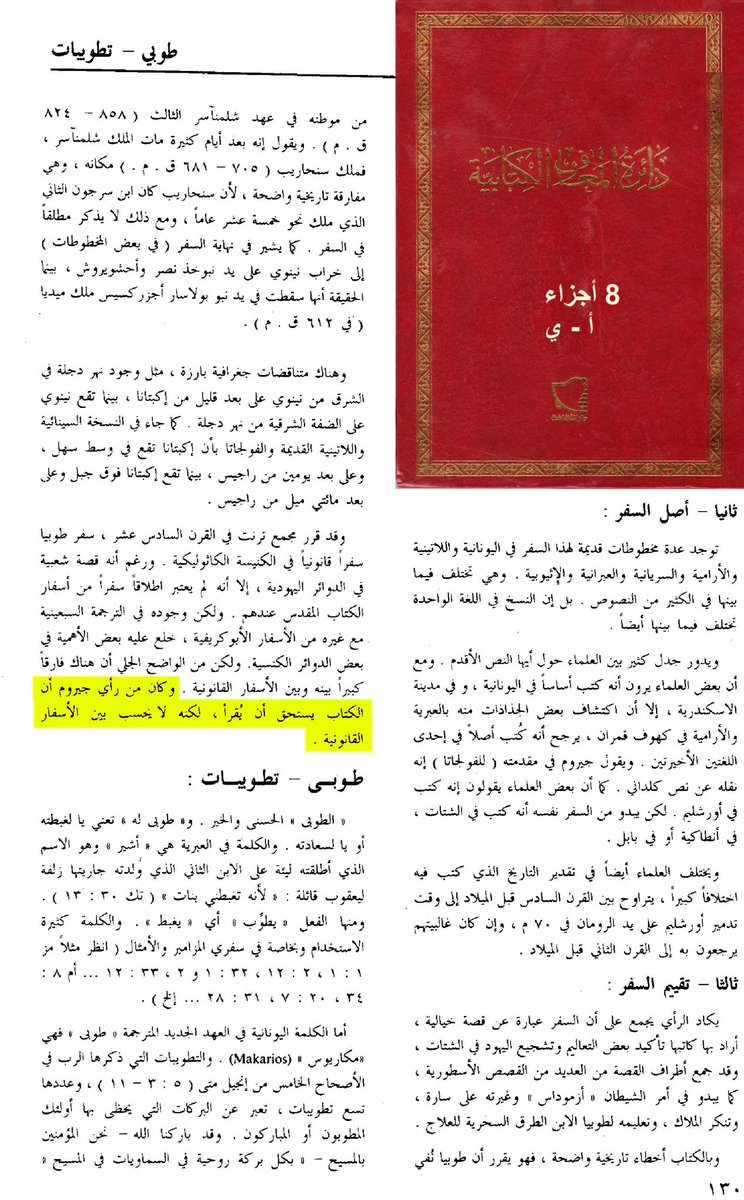 طوبي - تطويبات
دائرة المعارف الكتابية
8 أجزاء
أ - ي
ثانيا - أصل السفر :
توجد عدة مخطوطات قديمة لهذا السفر في اليونانية واللاتينية
والأرامية والسريانية والعبرانية والإثيوبية . وهي تختلف فيما
بينها في الكثير من النصوص . بل إن النسخ في اللغة الواحدة
تختلف فيما بينها أيضاً .
ويدور جدل كثير بين العلماء حول أيها النص الأقدم . ومع
أن بعض العلماء يرون أنه كتب أساساً في اليونانية ، و في مدينة
الاسكندرية ، إلا أن اكتشاف بعض الجذاذات منه بالعبرية
والأرامية في كهوف قمران ، يرجح أنه كُتب أصلاً في إحدى
اللغتين الأخيرتين . ويقول جيروم في مقدمته ( للفولجاتا ) إنه
نقله عن نص كلداني . كما أن بعض العلماء يقولون إنه كتب
في أورشليم . لكن يبدو من السفر نفسه أنه كتب في الشتات ،
في أنطاكية أو في بابل .
ويختلف العلماء أيضاً في تقدير التاريخ الذي كتب فيه
اختلافاً كبيراً ، يتراوح بين القرن السادس قبل الميلاد إلى وقت
تدمير أورشليم على يد الرومان في ٧٠ م ، وإن كان غالبيتهم
يرجعون به إلى القرن الثاني قبل الميلاد .
ثالثا - تقييم السفر :
يكاد الرأي يجمع على أن السفر عبارة عن قصة خيالية ،
أراد بها كاتبها تأكيد بعض التعاليم وتشجيع اليهود في الشتات ،
وقد جمع أطراف القصة من العديد من القصص الأسطورية ،
كما يبدو في أمر الشيطان « أزموداس » وغيرته على سارة ،
وتنكر الملاك ، وتعليمه لطوبيا الابن الطرق السحرية للعلاج .
وبالكتاب أخطاء تاريخية واضحة ، فهو يقرر أن طوبيا نُفي
من موطنه في عهد شلمنآسر الثالث ( ٨٥٨ - ٨٢٤
ق . م ) . ويقول إنه بعد أيام كثيرة مات الملك شلمنآسر ،
فملك سنحاريب ( ٧٠٥ - ٦٨١ ق . م . ) مكانه ، وهي
مفارقة تاريخية واضحة ، لأن سنحاريب كان ابن سرجون الثاني
الذي ملك نحو خمسة عشر عاماً ، ومع ذلك لا يذكر مطلقاً
في السفر . كما يشير في نهاية السفر ( في بعض المخطوطات )
إلى خراب نينوي على يد نبوخذ نصر وأحشويروش ، بينما
الحقيقة أنها سقطت في يد نبو بولاسار أجزركسيس ملك ميديا
( في ٦١٢ ق . م ) .
وهناك متناقضات جغرافية بارزة ، مثل وجود نهر دجلة في
الشرق من نينوي على بعد قليل من إكبتانا ، بينما تقع نينوي
على الضفة الشرقية من نهر دجلة . كما جاء في النسخة السينائية
واللاتينية القديمة والفولجاتا بأن إكبتانا تقع في وسط سهل ،
وعلى بعد يومين من راجيس ، بينما تقع إكبتانا فوق جبل وعلى
بعد مائتي ميل من راجيس .
وقد قرر مجمع ترنت في القرن السادس عشر ، سفر طوبيا
سفراً قانونياً في الكنيسة الكاثوليكية . ورغم أنه قصة شعبية
في الدوائر اليهودية ، إلا أنه لم يعتبر اطلاقاً سفراً من أسفار
الكتاب المقدس عندهم . ولكن وجوده في الترجمة السبعينية
مع غيره من الأسفار الأبوكريفية ، خلع عليه بعض الأهمية في
بعض الدوائر الكنسية. ولكن من الواضح الجلي أن هناك فارقاً
كبيراً بينه وبين الأسفار القانونية . وكان من رأي جيروم أن
الكتاب يستحق أن يُقرأ ، لكنه لا يحسب بين الأسفار
القانونية .
طـوبـى - تطويـبـات :
« الطوبى » الحسنى والخير . و« طوبى له » تعني يا لغبطته
أو يا لسعادته . والكلمة في العبرية هي « أشير » وهو الاسم
الذي أطلقته ليئة على الابن الثاني الذي ولدته جاريتها زلفة
ليعقوب قائلة : « لأنه تغبطني بنات » ( تك ٣٠ : ١٣ ) .
ومنها الفعل « يطوِّب » أي « يغبط » . والكلمة كثيرة
الاستخدام وبخاصة في سفري المزامير والأمثال ( انظر مثلاً مز
١ : ١ ، ٢ : ١٢ ، ٣٢ : ١ و ٢ ، ٣٣ : ١٢ ... أم ٨ :
٣٤ ، ٢٠ : ٧ ، ٣١ : ٢٨ ... إلخ ) .
أما الكلمة اليونانية في العهد الجديد المترجمة « طوبى » فهي
«مكاريوس » (Makarios) . والتطويبات التي ذكرها الرب في
الأصحاح الخامس من إنجيل متى ( ٥ : ٣ - ١١ ) ، وعددها
تسع تطويبات ، تعبر عن البركات التي يحظى بها أولئك
المطوبون أو المباركون . وقد باركنا الله - نحن المؤمنين
بالمسيح - « بكل بركة روحية في السماويات في المسيح »
١٣٠